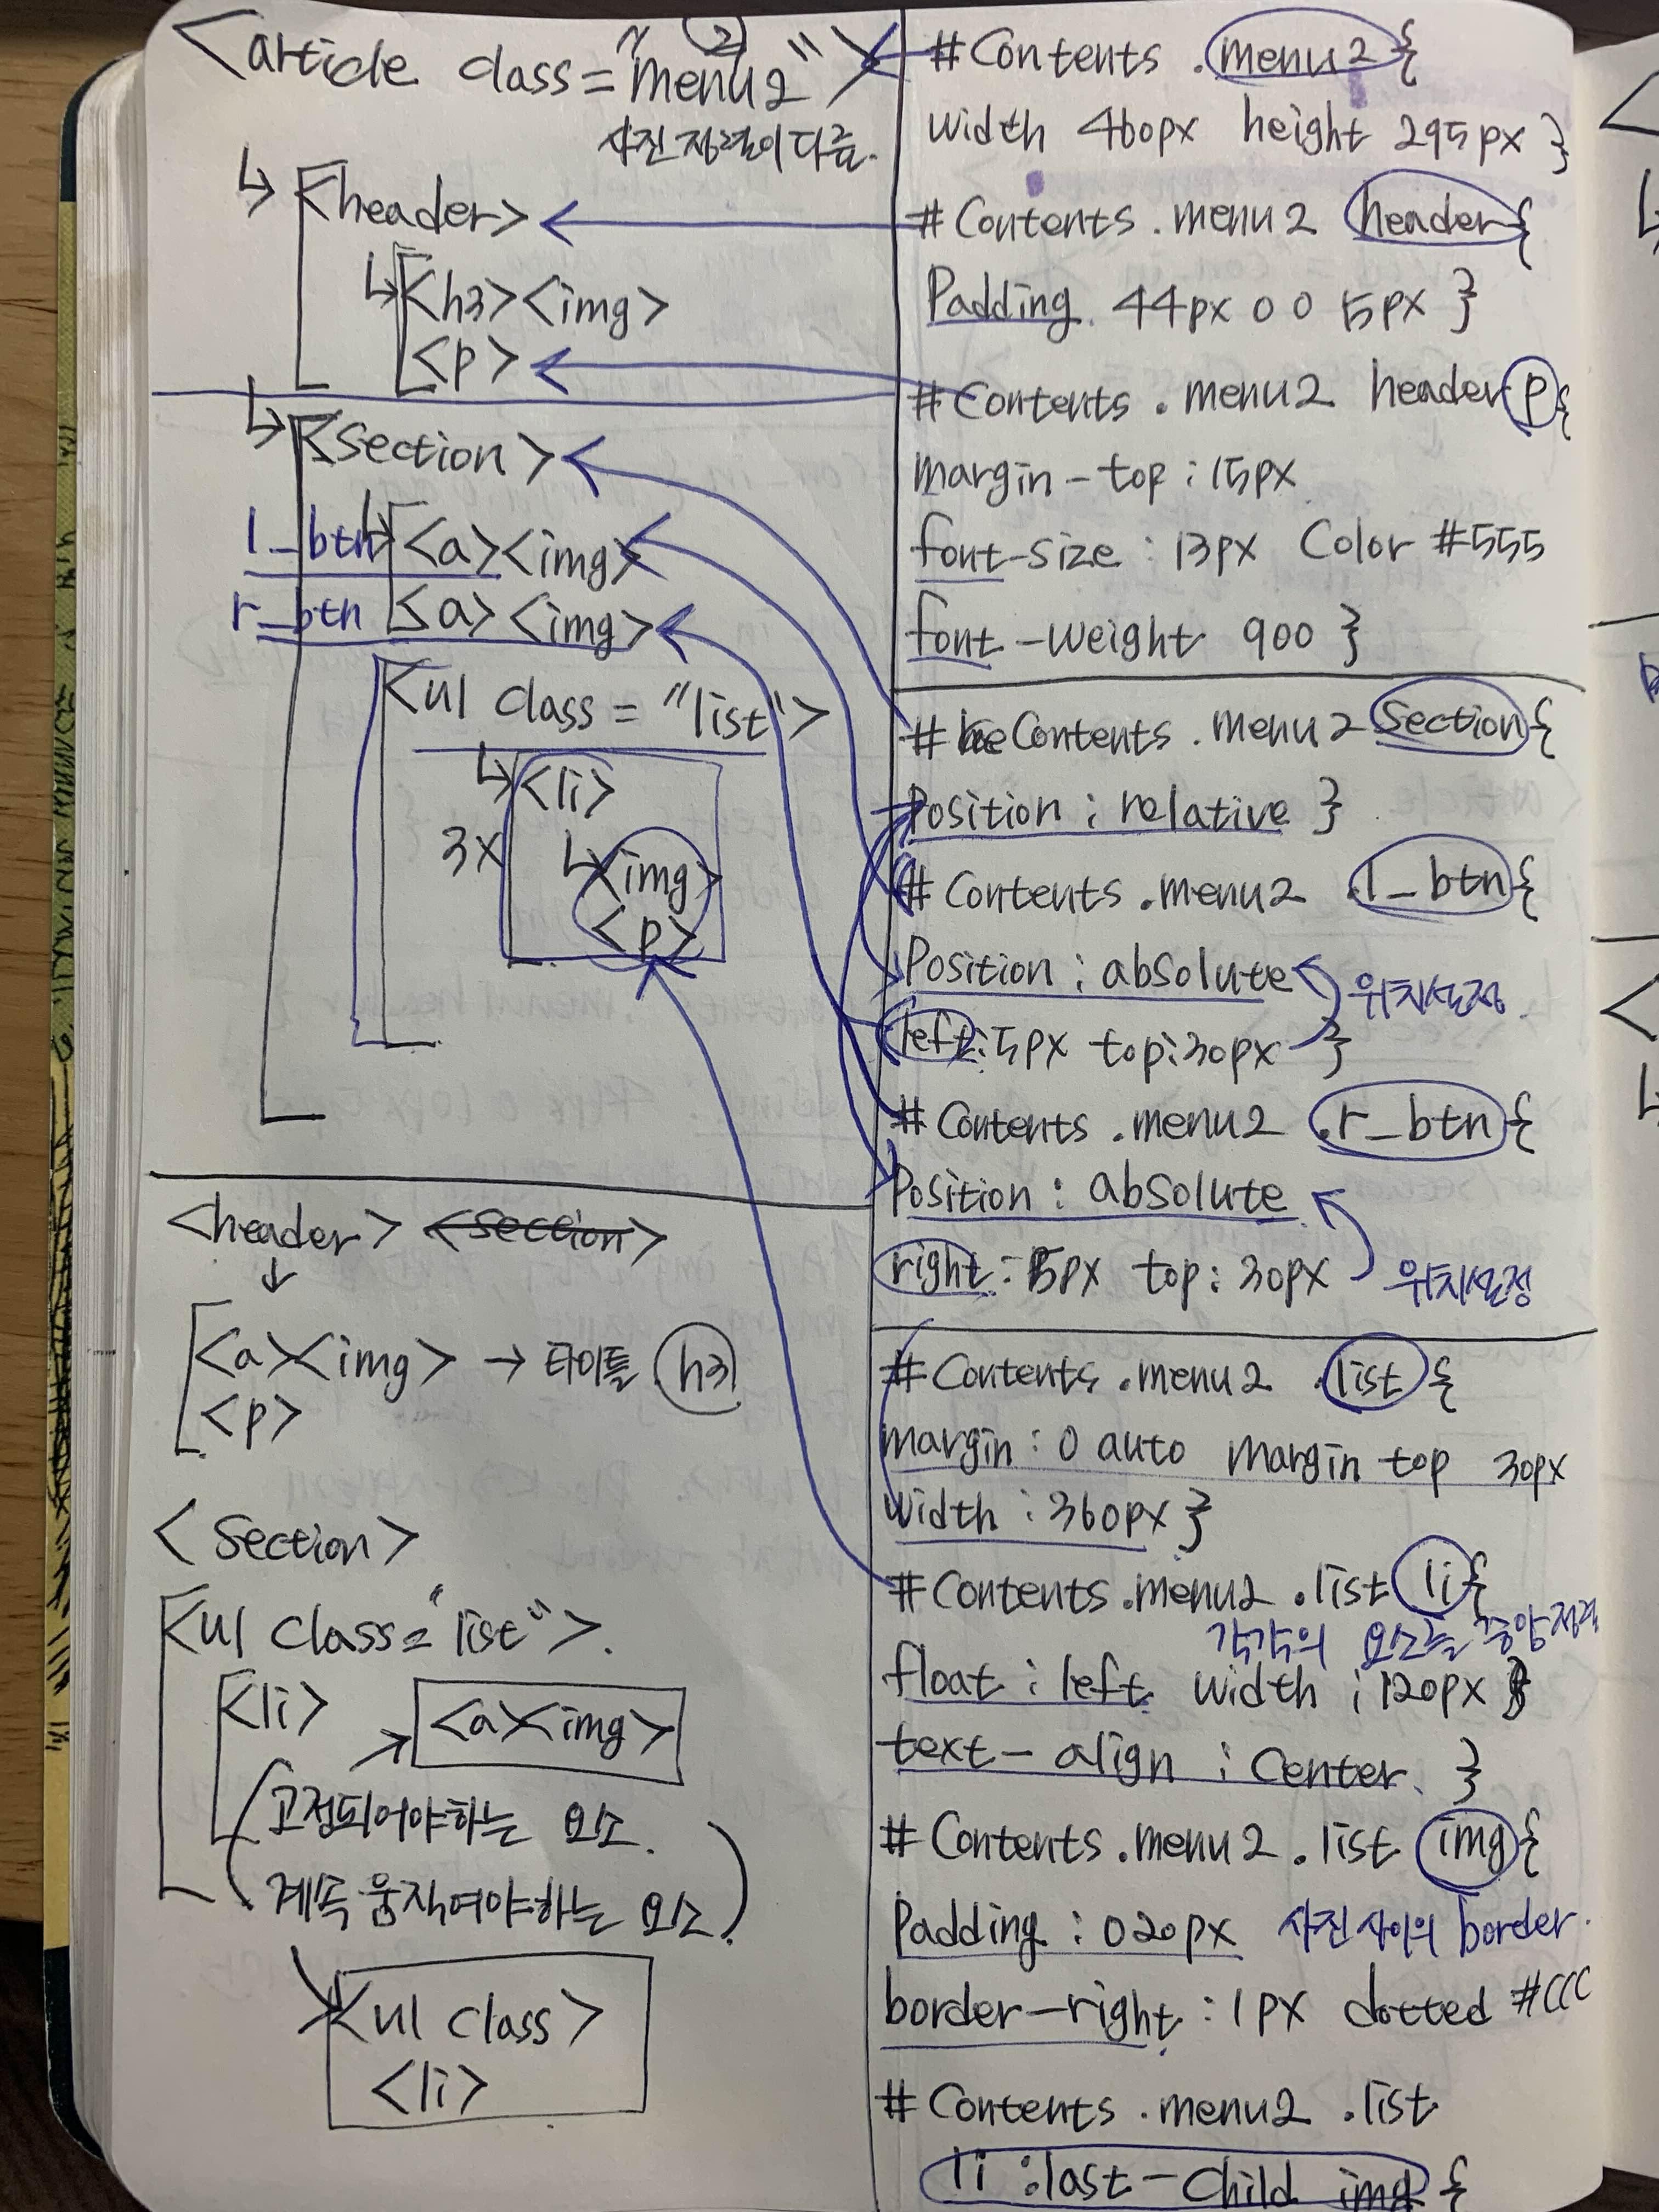 <article class="menu2">
②
사진정렬이 다름.
↳ <header>
↳ <h3><img>
<p>
↳ <section>
l_btn ↳ <a><img>
r_btn <a><img>
<ul class="list">
↳ <li>
3x ↳ <img>
<p>
<header> <section>
↓
<a><img> → 타이틀 h3
<p>
<section>
<ul class="list">.
<li> <a><img>
(고정되어야하는 요소.
(계속 움직여야하는 요소.)
<ul class>
<li>
#Contents .menu2{
width 460px height 295px }
#Contents .menu2 header{
Padding 44px 0 0 5px }
#Contents .menu2 header p{
margin-top : 15px
font-size : 13px Color #555
font-weight 900 }
# Contents .menu2 section{
Position : relative }
# Contents .menu2 .l_btn{
Position : absolute 위치설정
left:5px top:30px }
# Contents .menu2 .r_btn{
Position : absolute
right: 5px top: 30px 위치설정
#Contents .menu2 .list {
margin : 0 auto margin top 30px
width : 360px }
#Contents .menu2 .list li{
각각의 요소를 중앙정렬
float : left width ; 120px
text-align : Center. }
# Contents .menu2 .list img{
Padding : 0 20px 사진 사이의 border.
border-right : 1px dotted #CCC
# Contents .menu2 .list
li :last-child img {